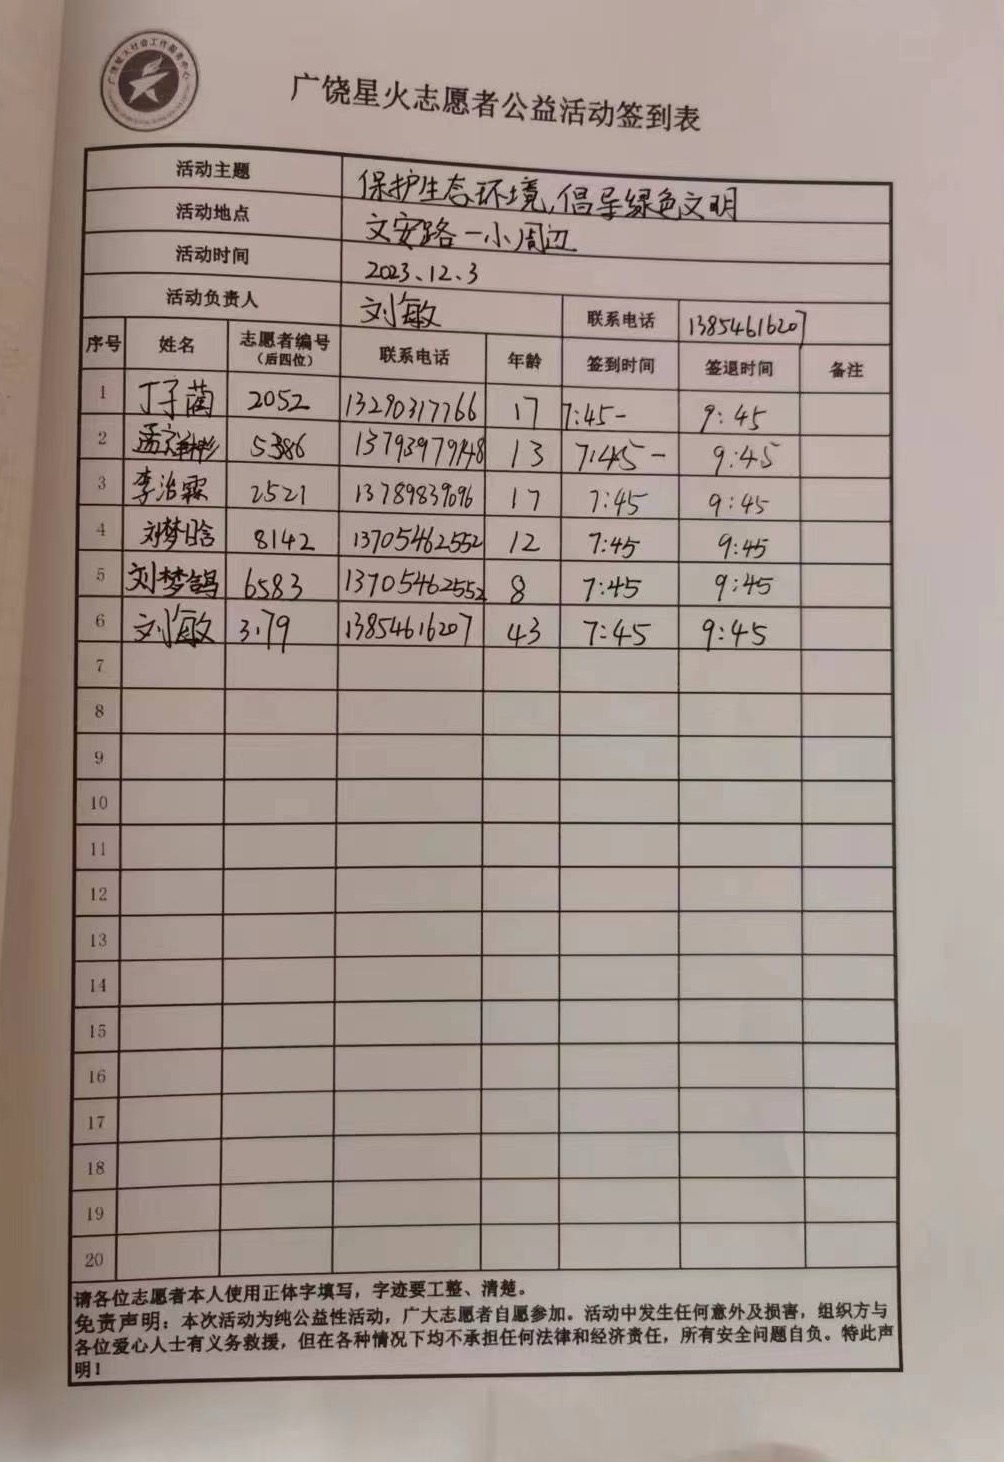 广饶星火社会工作服务中心
广饶星火志愿者公益活动签到表
活动主题 保护生态环境,倡导绿色文明
活动地点 文安路一小周边
活动时间 2023.12.3
活动负责人 刘敏 联系电话 13854616207
序号 姓名 志愿者编号(后四位) 联系电话 年龄 签到时间 签退时间 备注
1 丁子蔺 2052 13290317766 17 7:45- 9:45
2 5386 13793979148 13 7:45- 9:45
3 李治霖 2521 13789839096 17 7:45 9:45
4 刘梦晗 8142 13705462552 12 7:45 9:45
5 刘梦鸽 6583 13705462552 8 7:45 9:45
6 刘敏 3179 13854616207 43 7:45 9:45
7
8
9
10
11
12
13
14
15
16
17
18
19
20
请各位志愿者本人使用正体字填写,字迹要工整、清楚。
免责声明:本次活动为纯公益性活动,广大志愿者自愿参加。活动中发生任何意外及损害,组织方与
各位爱心人士有义务救援,但在各种情况下均不承担任何法律和经济责任,所有安全问题自负。特此声
明!